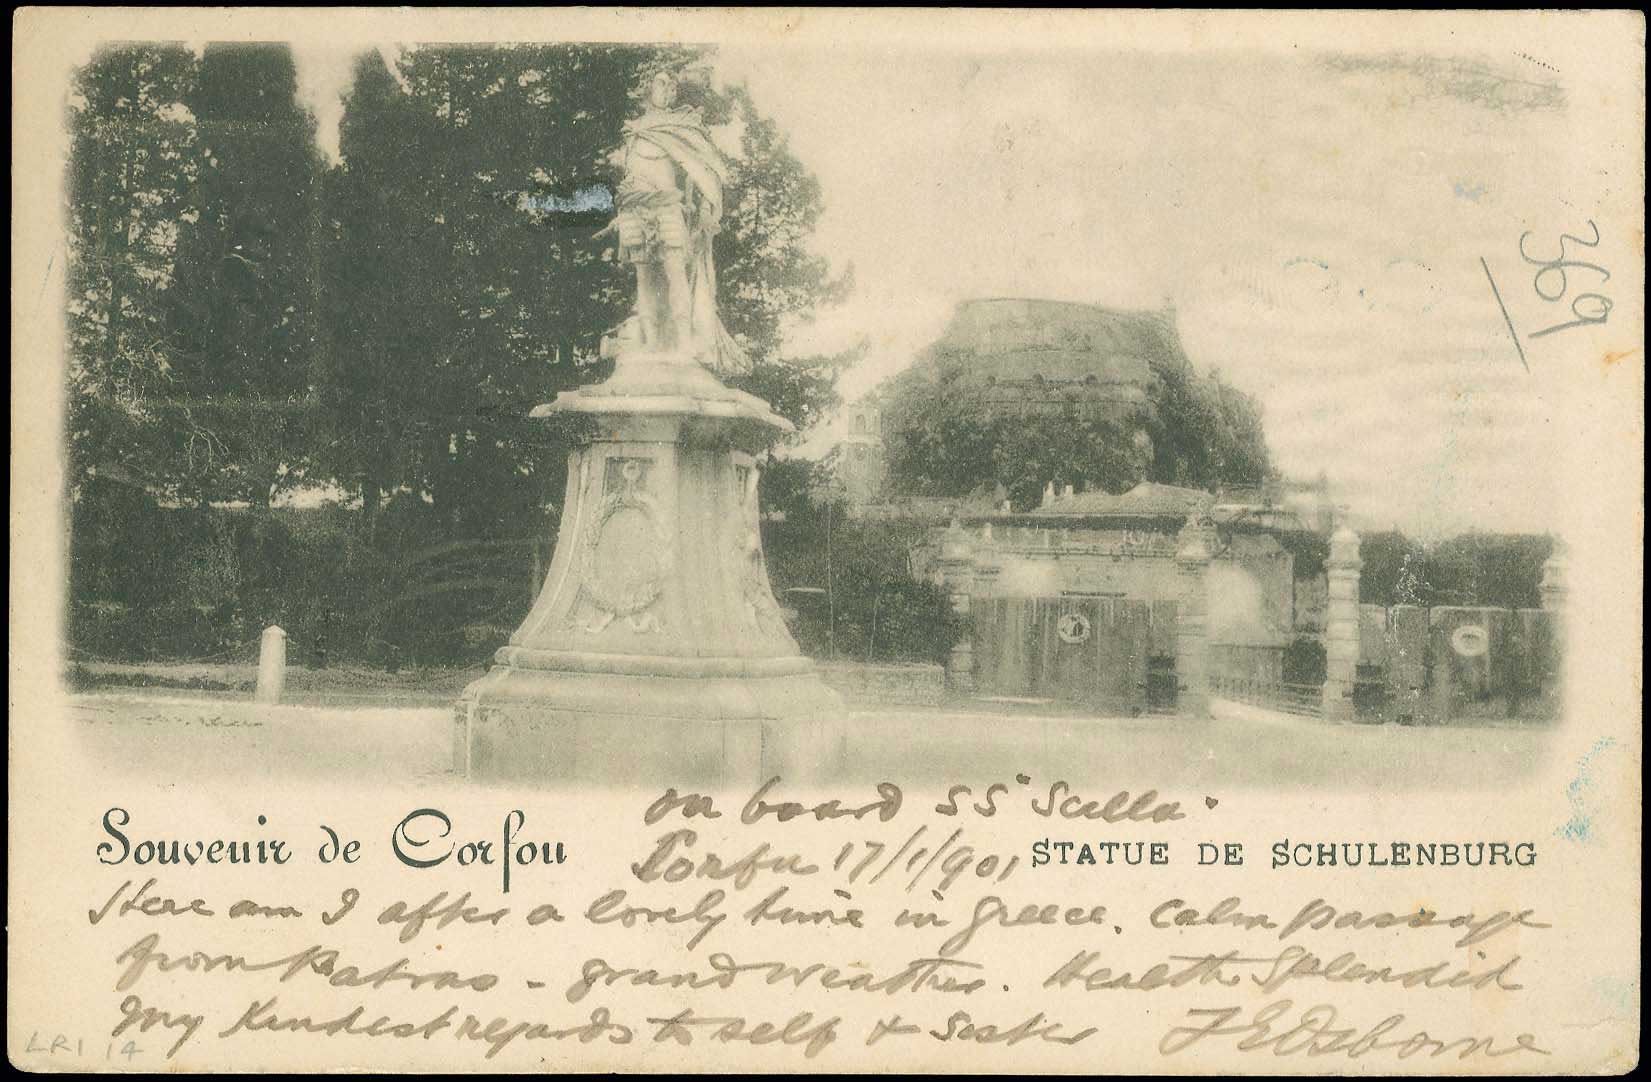 369
on board SS "Scilla"
Souvenir de Corfou
Corfu 17/1/901
STATUE DE SCHULENBURG
Here am I after a lovely time in Greece. Calm passage
from Patras - grand weather. Health Splendid
My Kindest regards to self & Sister F E Osborne
LR1 14